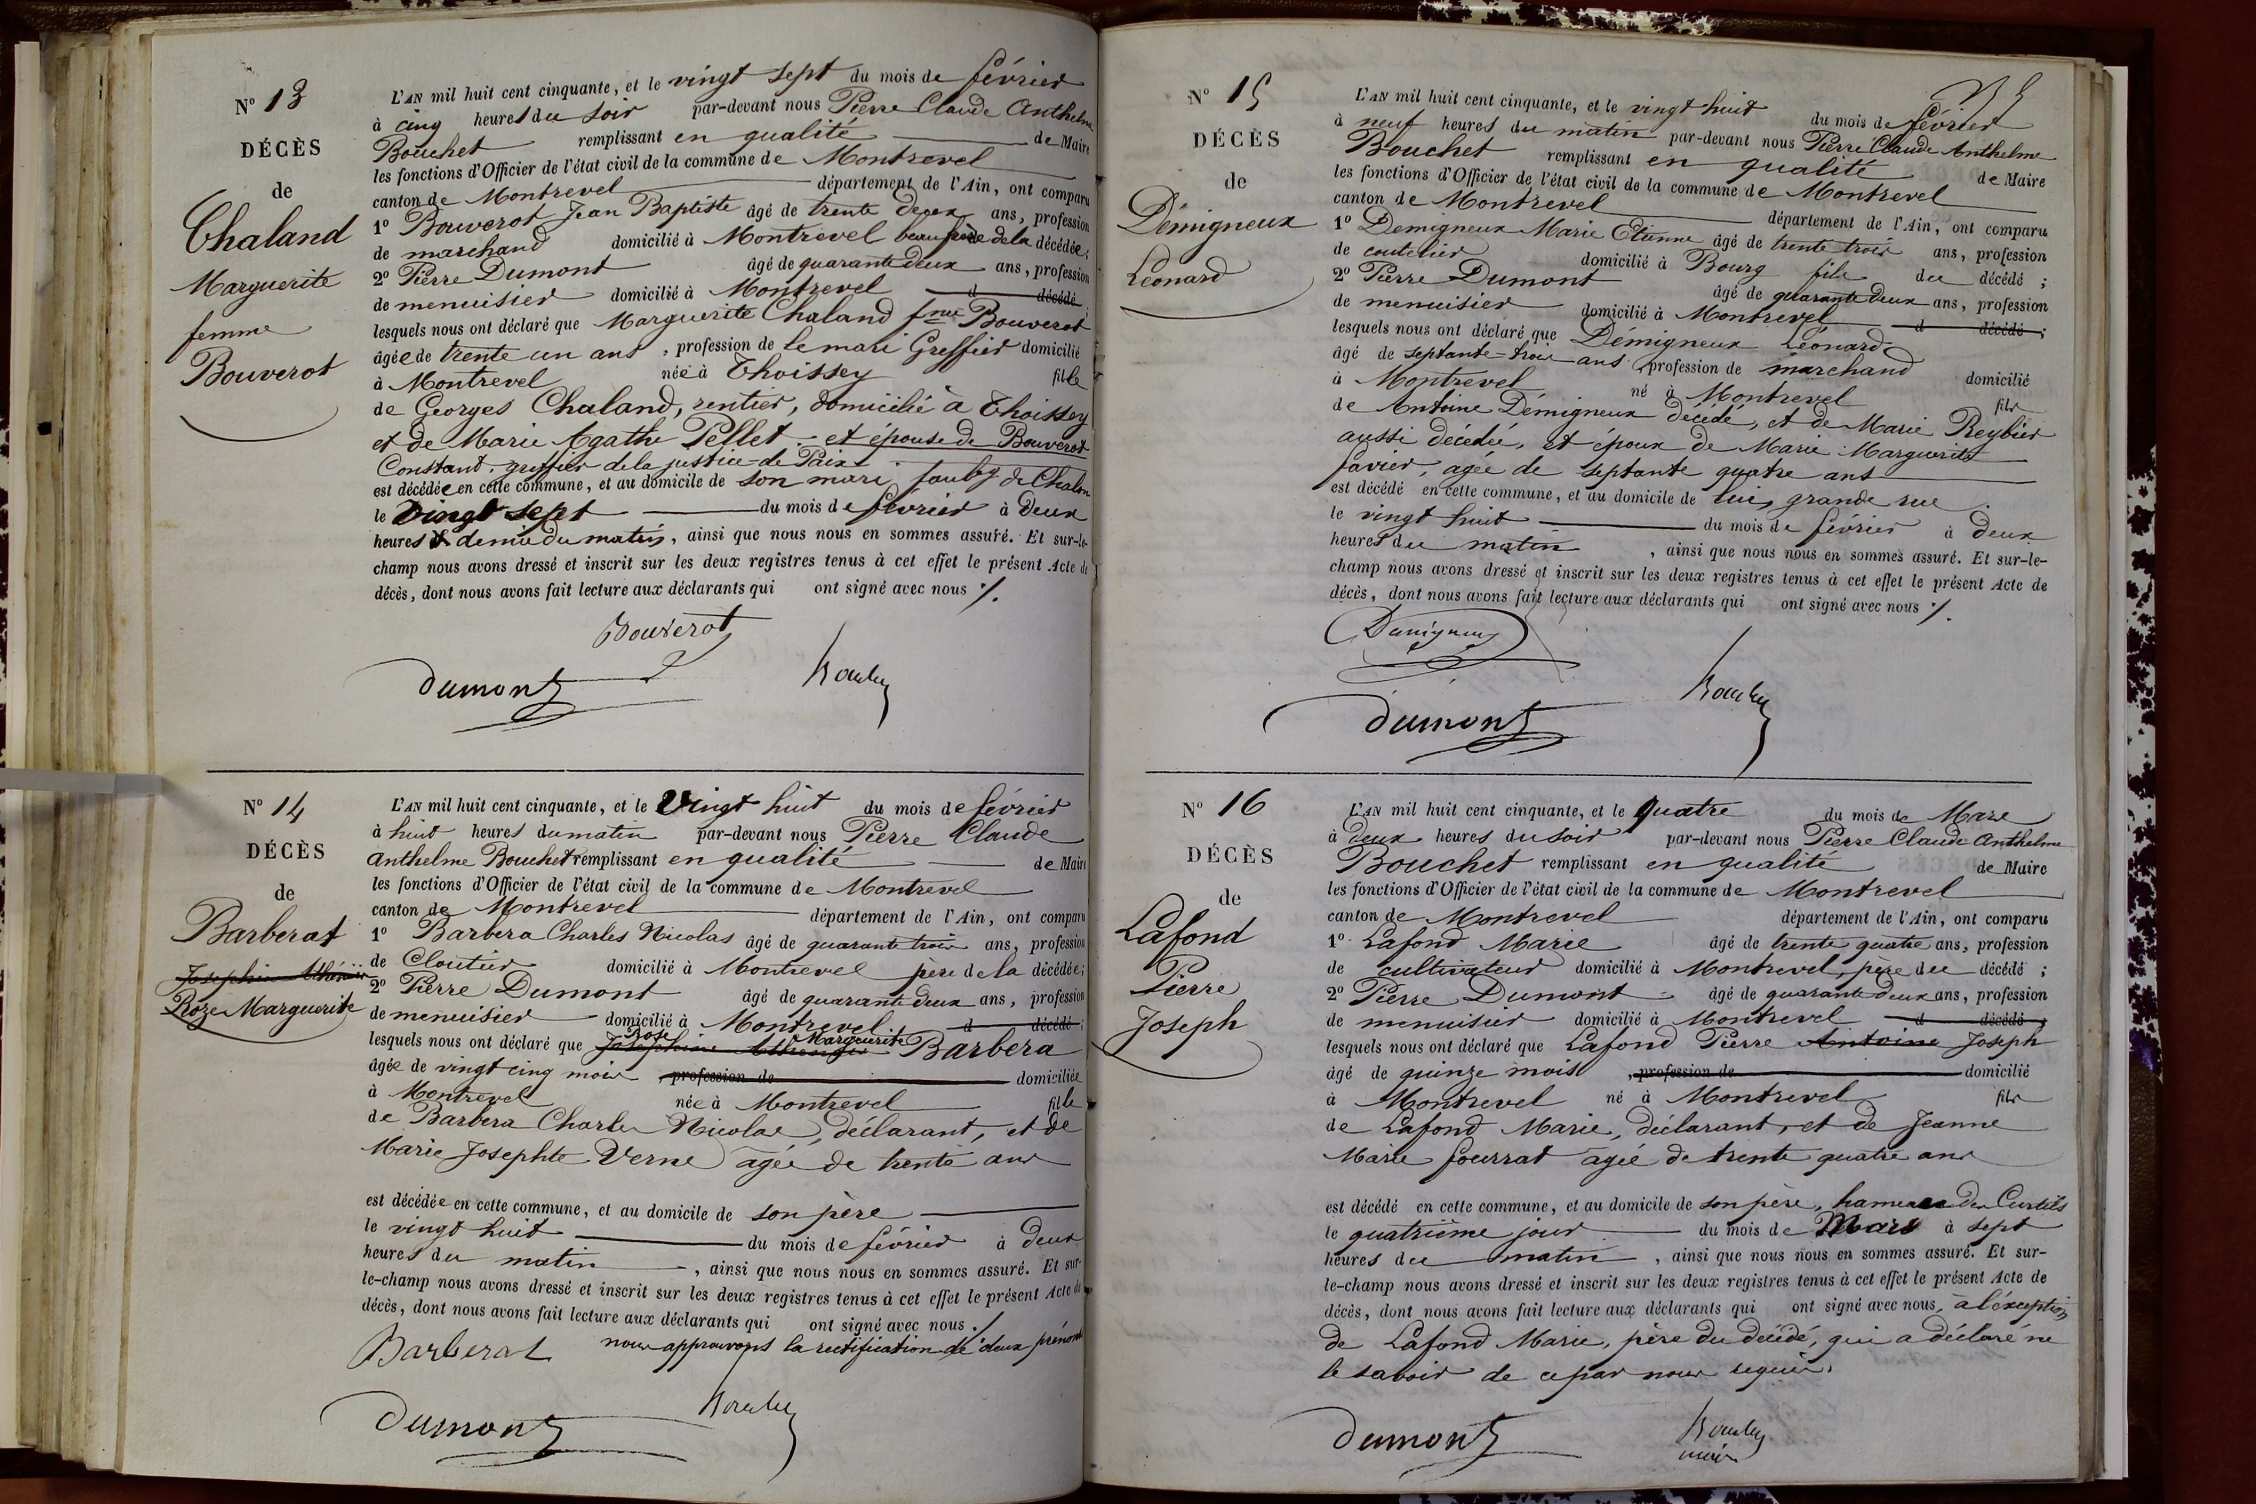 Nº 13
DÉCÈS
de
Chaland
Marguerite
femme
Bouverot
L'AN mil huit cent cinquante, et le vingt sept du mois de février
à cinq heures du soir par-devant nous Pierre Claude Anthelme
Bouchet remplissant en qualité de Maire
les fonctions d'Officier de l'état civil de la commune de Montrevel
canton de Montrevel département de l'Ain, ont comparu
1º Bouverot Jean Baptiste âgé de trente deux ans, profession
de marchand domicilié à Montrevel beau frère de la décédée;
2º Pierre Dumont âgé de quarante deux ans, profession
de menuisier domicilié à Montrevel d décédé
lesquels nous ont déclaré que Marguerite Chaland fme Bouverot
âgée de trente un ans, profession de le mari Greffier domicilié
à Montrevel née à Thoissey fille
de Georges Chaland, rentier, domicilié à Thoissey
et de Marie Agathe Pellet. - et épouse de Bouverot
Constant, greffier de la justice de Paix
est décédée en cette commune, et au domicile de son mari, faubg de Chalon
le vingt sept du mois de février à deux
heures & demie du matin, ainsi que nous nous en sommes assuré. Et sur-le-
champ nous avons dressé et inscrit sur les deux registres tenus à cet effet le présent Acte de
décès, dont nous avons fait lecture aux déclarants qui ont signé avec nous ./.
Bouverot
Dumont Bouchet
Nº 14
DÉCÈS
de
Barberat
Rose Marguerite
L'AN mil huit cent cinquante, et le vingt huit du mois de février
à huit heures du matin par-devant nous Pierre Claude
Anthelme Bouchet remplissant en qualité de Maire
les fonctions d'Officier de l'état civil de la commune de Montrevel
canton de Montrevel département de l'Ain, ont comparu
1º Barbera Charles Nicolas âgé de quarante trois ans, profession
de Cloutier domicilié à Montrevel père de la décédée;
2º Pierre Dumont âgé de quarante deux ans, profession
de menuisier domicilié à Montrevel d décédé;
lesquels nous ont déclaré que Rose Marguerite Barbera
âgée de vingt cinq mois, profession de domiciliée
à Montrevel née à Montrevel fille
de Barbera Charles Nicolas, déclarant, et de
Marie Josephte Verne agée de trente ans
est décédée en cette commune, et au domicile de son père
le vingt huit du mois de février à deux
heures du matin, ainsi que nous nous en sommes assuré. Et sur-
le-champ nous avons dressé et inscrit sur les deux registres tenus à cet effet le présent Acte de
décès, dont nous avons fait lecture aux déclarants qui ont signé avec nous ./
Barberat nous approuvons la rectification de deux prénoms
Dumont Bouchet
Nº 15
DÉCÈS
de
Démigneux
Léonard
L'AN mil huit cent cinquante, et le vingt huit du mois de février
à neuf heures du matin par-devant nous Pierre Claude Anthelme
Bouchet remplissant en qualité de Maire
les fonctions d'Officier de l'état civil de la commune de Montrevel
canton de Montrevel département de l'Ain, ont comparu
1º Demigneux Marie Etienne âgé de trente trois ans, profession
de coutelier domicilié à Bourg fils du décédé;
2º Pierre Dumont âgé de quarante deux ans, profession
de menuisier domicilié à Montrevel d décédé;
lesquels nous ont déclaré que Démigneux Léonard
âgé de septante-trois ans, profession de marchand domicilié
à Montrevel né à Montrevel fils
de Antoine Démigneux décédé, et de Marie Reybier
aussi décédée, et époux de Marie Marguerite
favier, agée de septante quatre ans
est décédé en cette commune, et au domicile de lui, grande rue.
le vingt huit du mois de février à deux
heures du matin, ainsi que nous nous en sommes assuré. Et sur-le-
champ nous avons dressé et inscrit sur les deux registres tenus à cet effet le présent Acte de
décès, dont nous avons fait lecture aux déclarants qui ont signé avec nous ./.
Demigneux
Dumont Bouchet
Nº 16
DÉCÈS
de
Lafond
Pierre
Joseph
L'AN mil huit cent cinquante, et le quatre du mois de Mars
à deux heures du soir par-devant nous Pierre Claude Anthelme
Bouchet remplissant en qualité de Maire
les fonctions d'Officier de l'état civil de la commune de Montrevel
canton de Montrevel département de l'Ain, ont comparu
1º Lafond Marie âgé de trente quatre ans, profession
de cultivateur domicilié à Montrevel, père du décédé;
2º Pierre Dumont âgé de quarante deux ans, profession
de menuisier domicilié à Montrevel d décédé;
lesquels nous ont déclaré que Lafond Pierre Antoine Joseph
âgé de quinze mois, profession de domicilié
à Montrevel né à Montrevel fils
de Lafond Marie, déclarant, et de Jeanne
Marie fourrat agée de trente quatre ans
est décédé en cette commune, et au domicile de son père, hameau des Curtils
le quatrième jour du mois de Mars à sept
heures du matin, ainsi que nous nous en sommes assuré. Et sur-
le-champ nous avons dressé et inscrit sur les deux registres tenus à cet effet le présent Acte de
décès, dont nous avons fait lecture aux déclarants qui ont signé avec nous, à l'exception
de Lafond Marie, père du décédé, qui a déclaré ne
le savoir de ce par nous requis.
Dumont Bouchet
maire